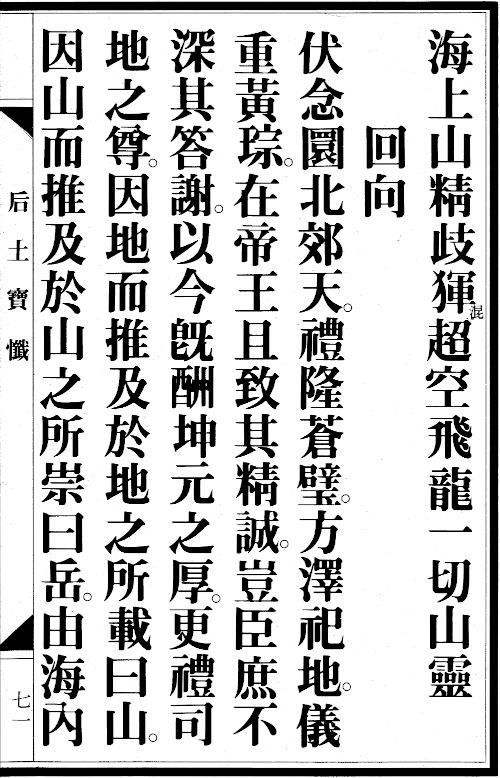 海上山精歧㺔混超空飛龍一切山靈
回向
伏念圜北郊天。禮隆蒼璧。方澤祀地。儀
重黃琮。在帝王且致其精誠。豈臣庶不
深其答謝。以今旣酬坤元之厚。更禮司
地之尊。因地而推及於地之所載曰山。
因山而推及於山之所崇曰岳。由海內
后土寶懺
七一